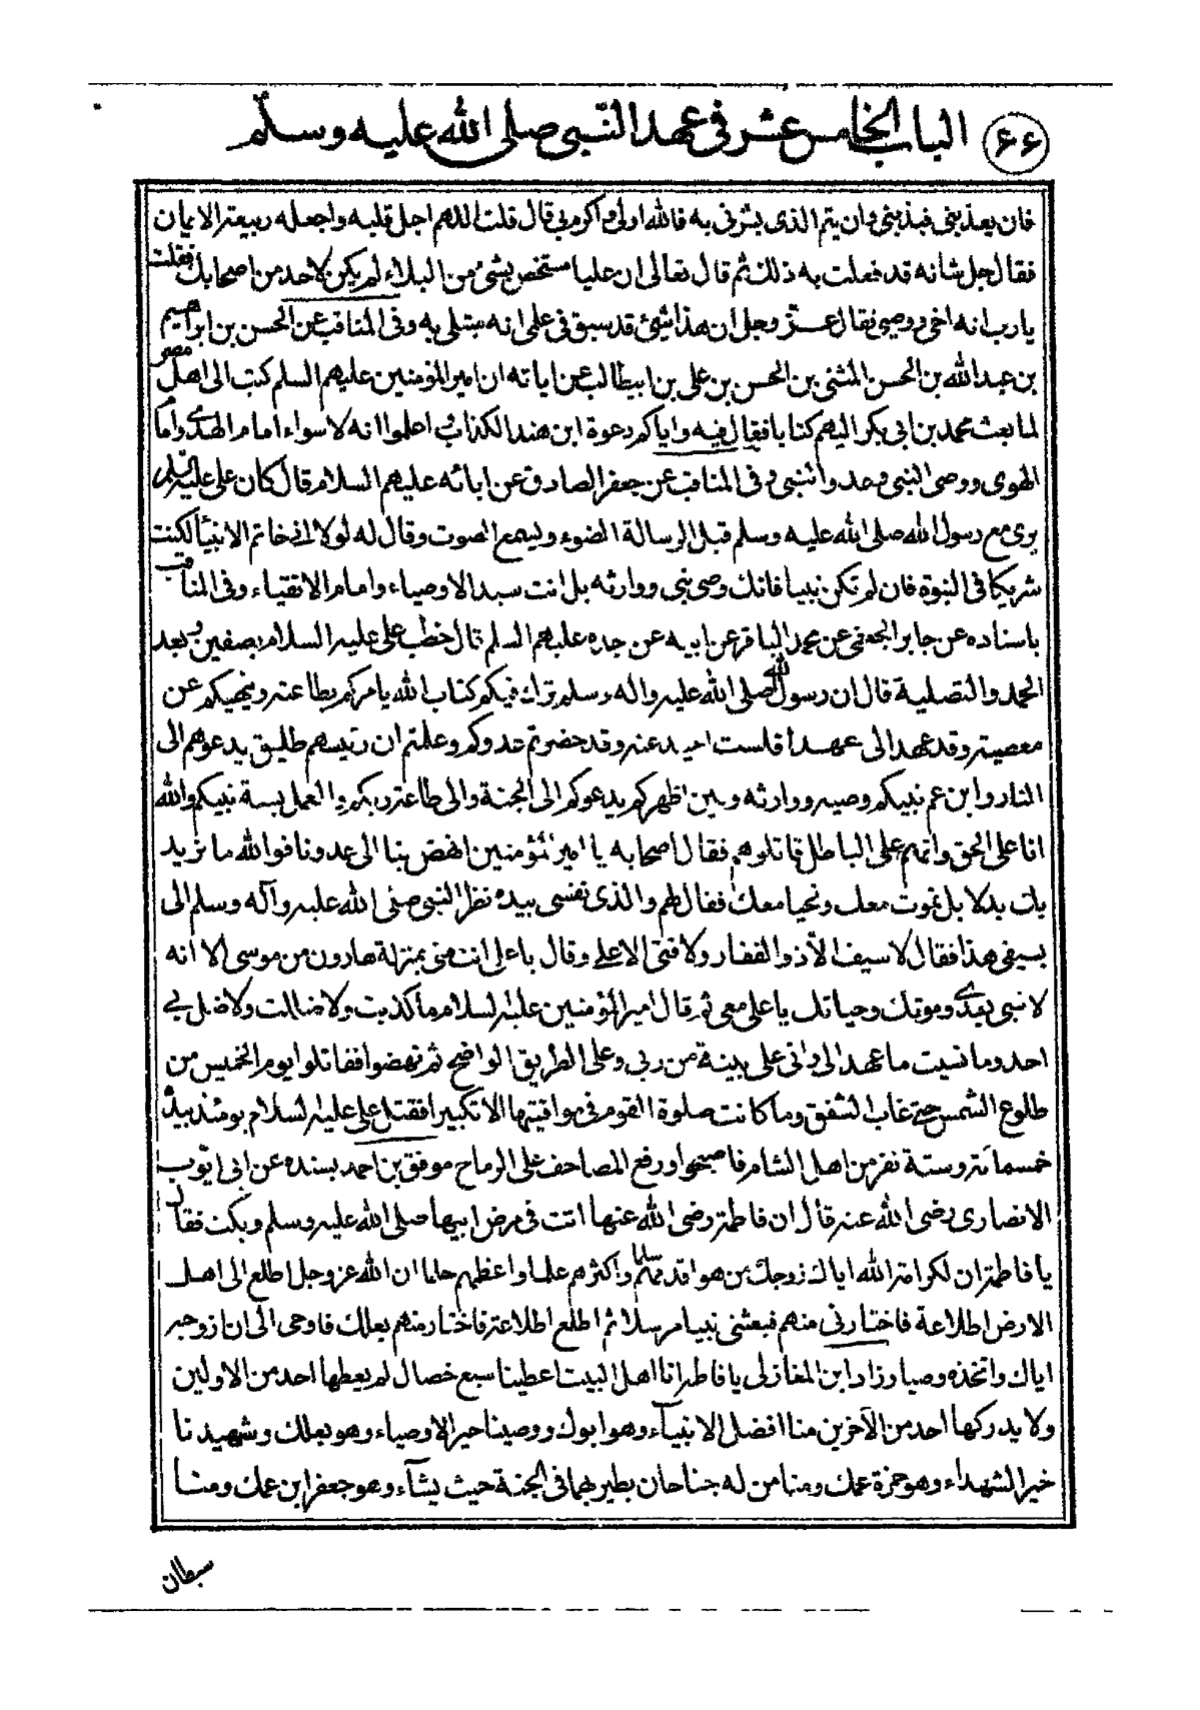 ٦٦ الباب الخامس عشر فى عهد النبى صلى الله عليه وسلم
فان يعذبنى فبذنبى وان يتم الذى بشرنى به فالله اولى واكرم بى قال قلت اللهم اجل قلبه واجعله ربيعة الايمان
فقال جل شانه قد فعلت به ذلك ثم قال تعالى ان عليا مستخص بشئ من البلاء لم يكن لاحد من اصحابك فقلت
يا رب انه اخى ووصيى فقال عز وجل ان هذا شئ قد سبق فى علمى انه مبتلى به وفى المناقب عن الحسن بن ابراهيم
بن عبد الله بن الحسن المثنى بن الحسن بن على بن ابيطالب عن اباته ان امير المؤمنين عليهم السلم كتب الى اهل مصر
لما بعث محمد بن ابى بكر اليهم كتابا فقال فيه واياكم دعوة ابن هند الكذاب واعلموا انه لا سواء امام الهدى وامام
الهوى ووصى النبى وعدو النبى وفى المناقب عن جعفر الصادق عن ابائه عليهم السلام قال كان على عليه السلم
يرى مع رسول الله صلى الله عليه وسلم قبل الرسالة الضوء ويسمع الصوت وقال له لولا انى خاتم الانبيآ لكنت
شريكا فى النبوة فان لم تكن نبيا فانك وصى نبى ووارثه بل انت سيد الاوصياء وامام الاتقياء وفى المناقب
باسناده عن جابر الجعفى عن محمد الباقر عن ابيه عن جده عليهم السلم قال خطب على عليه السلام بصفين وبعد
الحمد والتصلية قال ان رسول الله صلى الله عليه واله وسلم ترك فيكم كتاب الله يامركم بطاعته وينهيكم عن
معصيته وقد عهد الى عهدا فلست احيد عنه وقد حضرتم عدوكم وعلمتم ان رئيسهم طليق يدعوهم الى
النار وابن عم نبيكم وصيه ووارثه وبين اظهركم يدعوكم الى الجنة والى طاعة ربكم والعمل بسنة نبيكم والله
انا على الحق وانهم على الباطل قاتلوهم فقال اصحابه يا امير المؤمنين انهض بنا الى عدونا فوالله ما نريد
بك بدلا بل نموت معك ونحيا معك فقال لهم والذى نفسى بيده نظر النبى صلى الله عليه وآله وسلم الى
بسيفى هذا فقال لا سيف الا ذو الفقار ولا فتى الا على وقال يا على انت منى بمنزلة هارون من موسى الا انه
لا نبى بعدى وموتك وحياتك يا على معى ثم قال امير المؤمنين عليه السلام ما كذبت ولا ضللت ولا ضل بى
احد وما نسيت ما عهد الى وانى على بينة من ربى وعلى الطريق الواضح ثم نهضوا فقاتلوا يوم الخميس من
طلوع الشمس حتى غاب الشفق وما كانت صلوة القوم فى مواقيتها الا تكبيرا فقتل على عليه السلام يومئذ بيده
خمسمائة وستة نفر من اهل الشام فاصبحوا ورفع المصاحف على الرماح موفق بن احمد بسنده عن ابى ايوب
الانصارى رضى الله عنه قال ان فاطمة رضى الله عنها اتت فى مرض ابيها صلى الله عليه وسلم وبكت فقال
يا فاطمة ان لكرامة الله اياك زوجك من هو اقدمهم سلما واكثرهم علما واعظمهم حلما ان الله عز وجل اطلع الى اهل
الارض اطلاعة فاختارنى منهم فبعثنى نبيا مرسلا ثم اطلع اطلاعة فاختار منهم بعلك فاوحى الى ان ازوجه
اياك واتخذه وصيا وزاد ابن المغازلى يا فاطمة انا اهل البيت اعطينا سبع خصال لم يعطها احد من الاولين
ولا يدركها احد من الآخرين منا افضل الانبيآء وهو ابوك ووصينا خير الاوصياء وهو بعلك وشهيدنا
خير الشهداء وهو حمزة عمك ومنا من له جناحان يطير بهما فى الجنة حيث يشآء وهو جعفر ابن عمك ومنا
سبطان